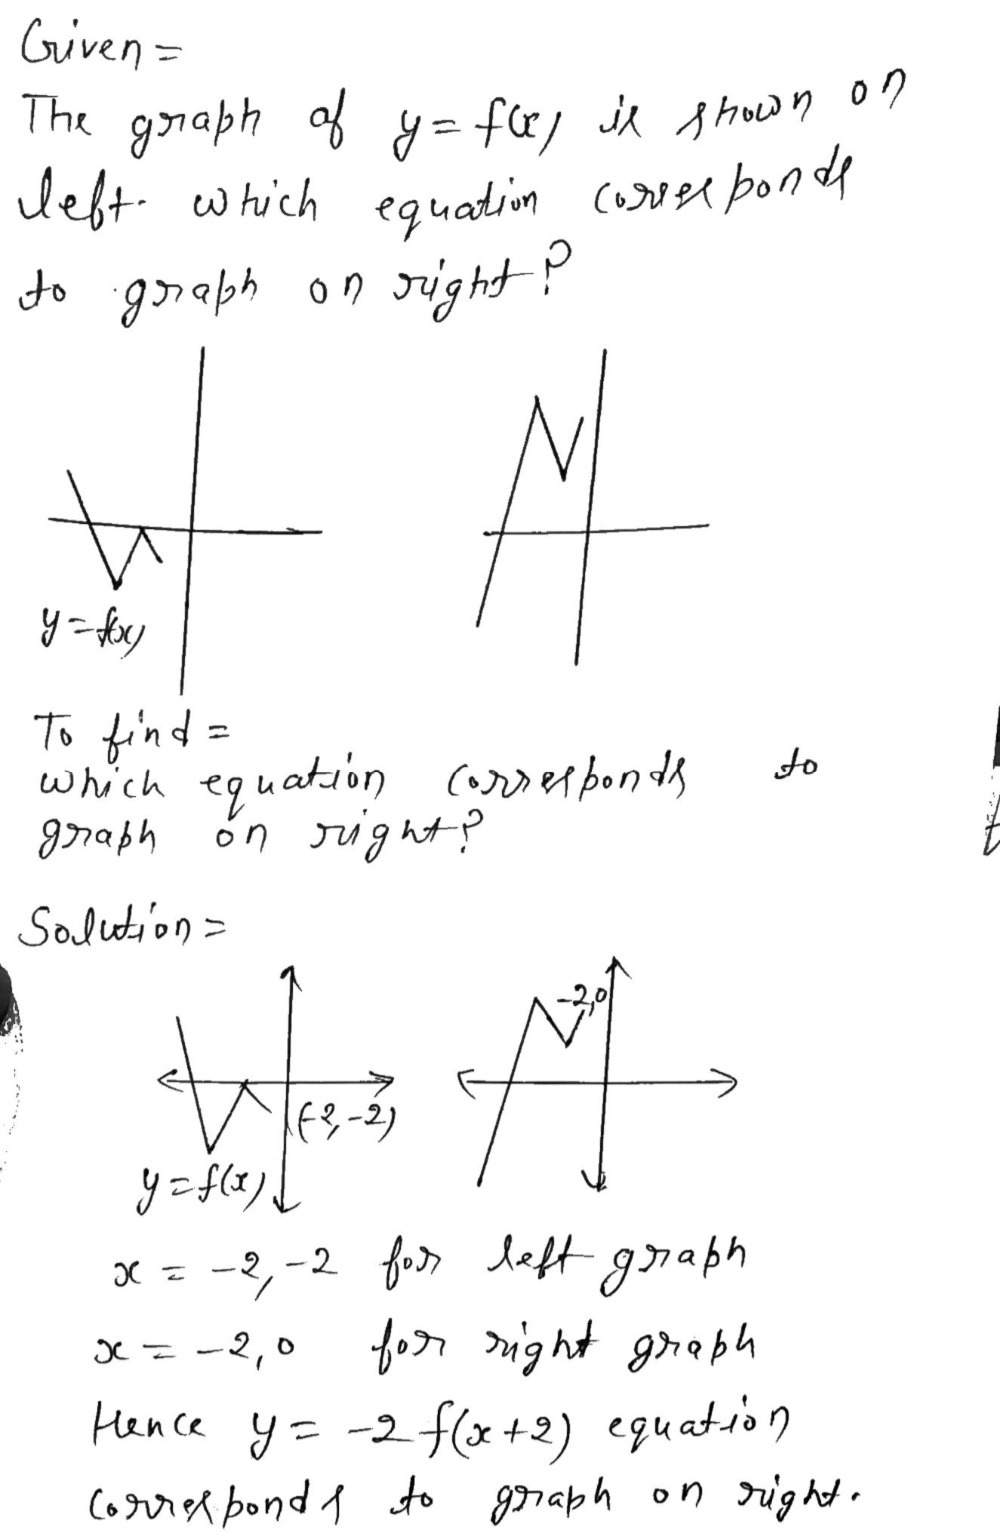 Given =
The graph of y = f(x) is shown on
left. which equation corresponds
to graph on right?
y = f(x)
To find =
which equation corresponds to
graph on right?
Solution =
-2,0
(-2,-2)
y = f(x)
x = -2,-2 for left graph
x = -2,0 for right graph
Hence y = -2f(x+2) equation
corresponds to graph on right.